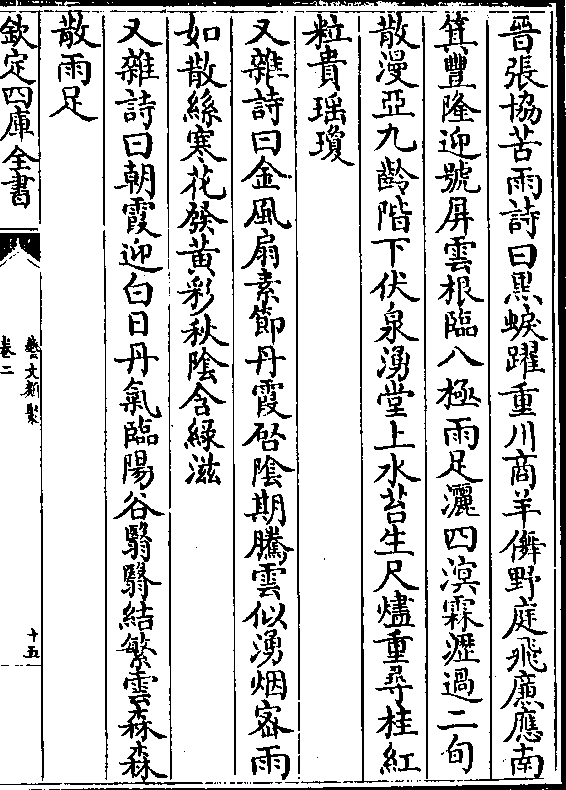 晉張協苦雨詩曰黒蜧躍重川商羊儛野庭飛廉應南
箕豐隆迎號屏雲根臨八極雨足灑四溟霖瀝過二旬
散漫亞九齡階下伏泉湧堂上水苔生尺燼重尋桂紅
粒貴瑶瓊
又雜詩曰金風扇素節丹霞啓陰期騰雲似湧烟宻雨
如散絲寒花發黃彩秋陰含緑滋
又雜詩曰朝霞迎白日丹氣臨陽谷翳翳結繁雲森森
散雨足
欽定四庫全書
藝文類聚
卷二
十五